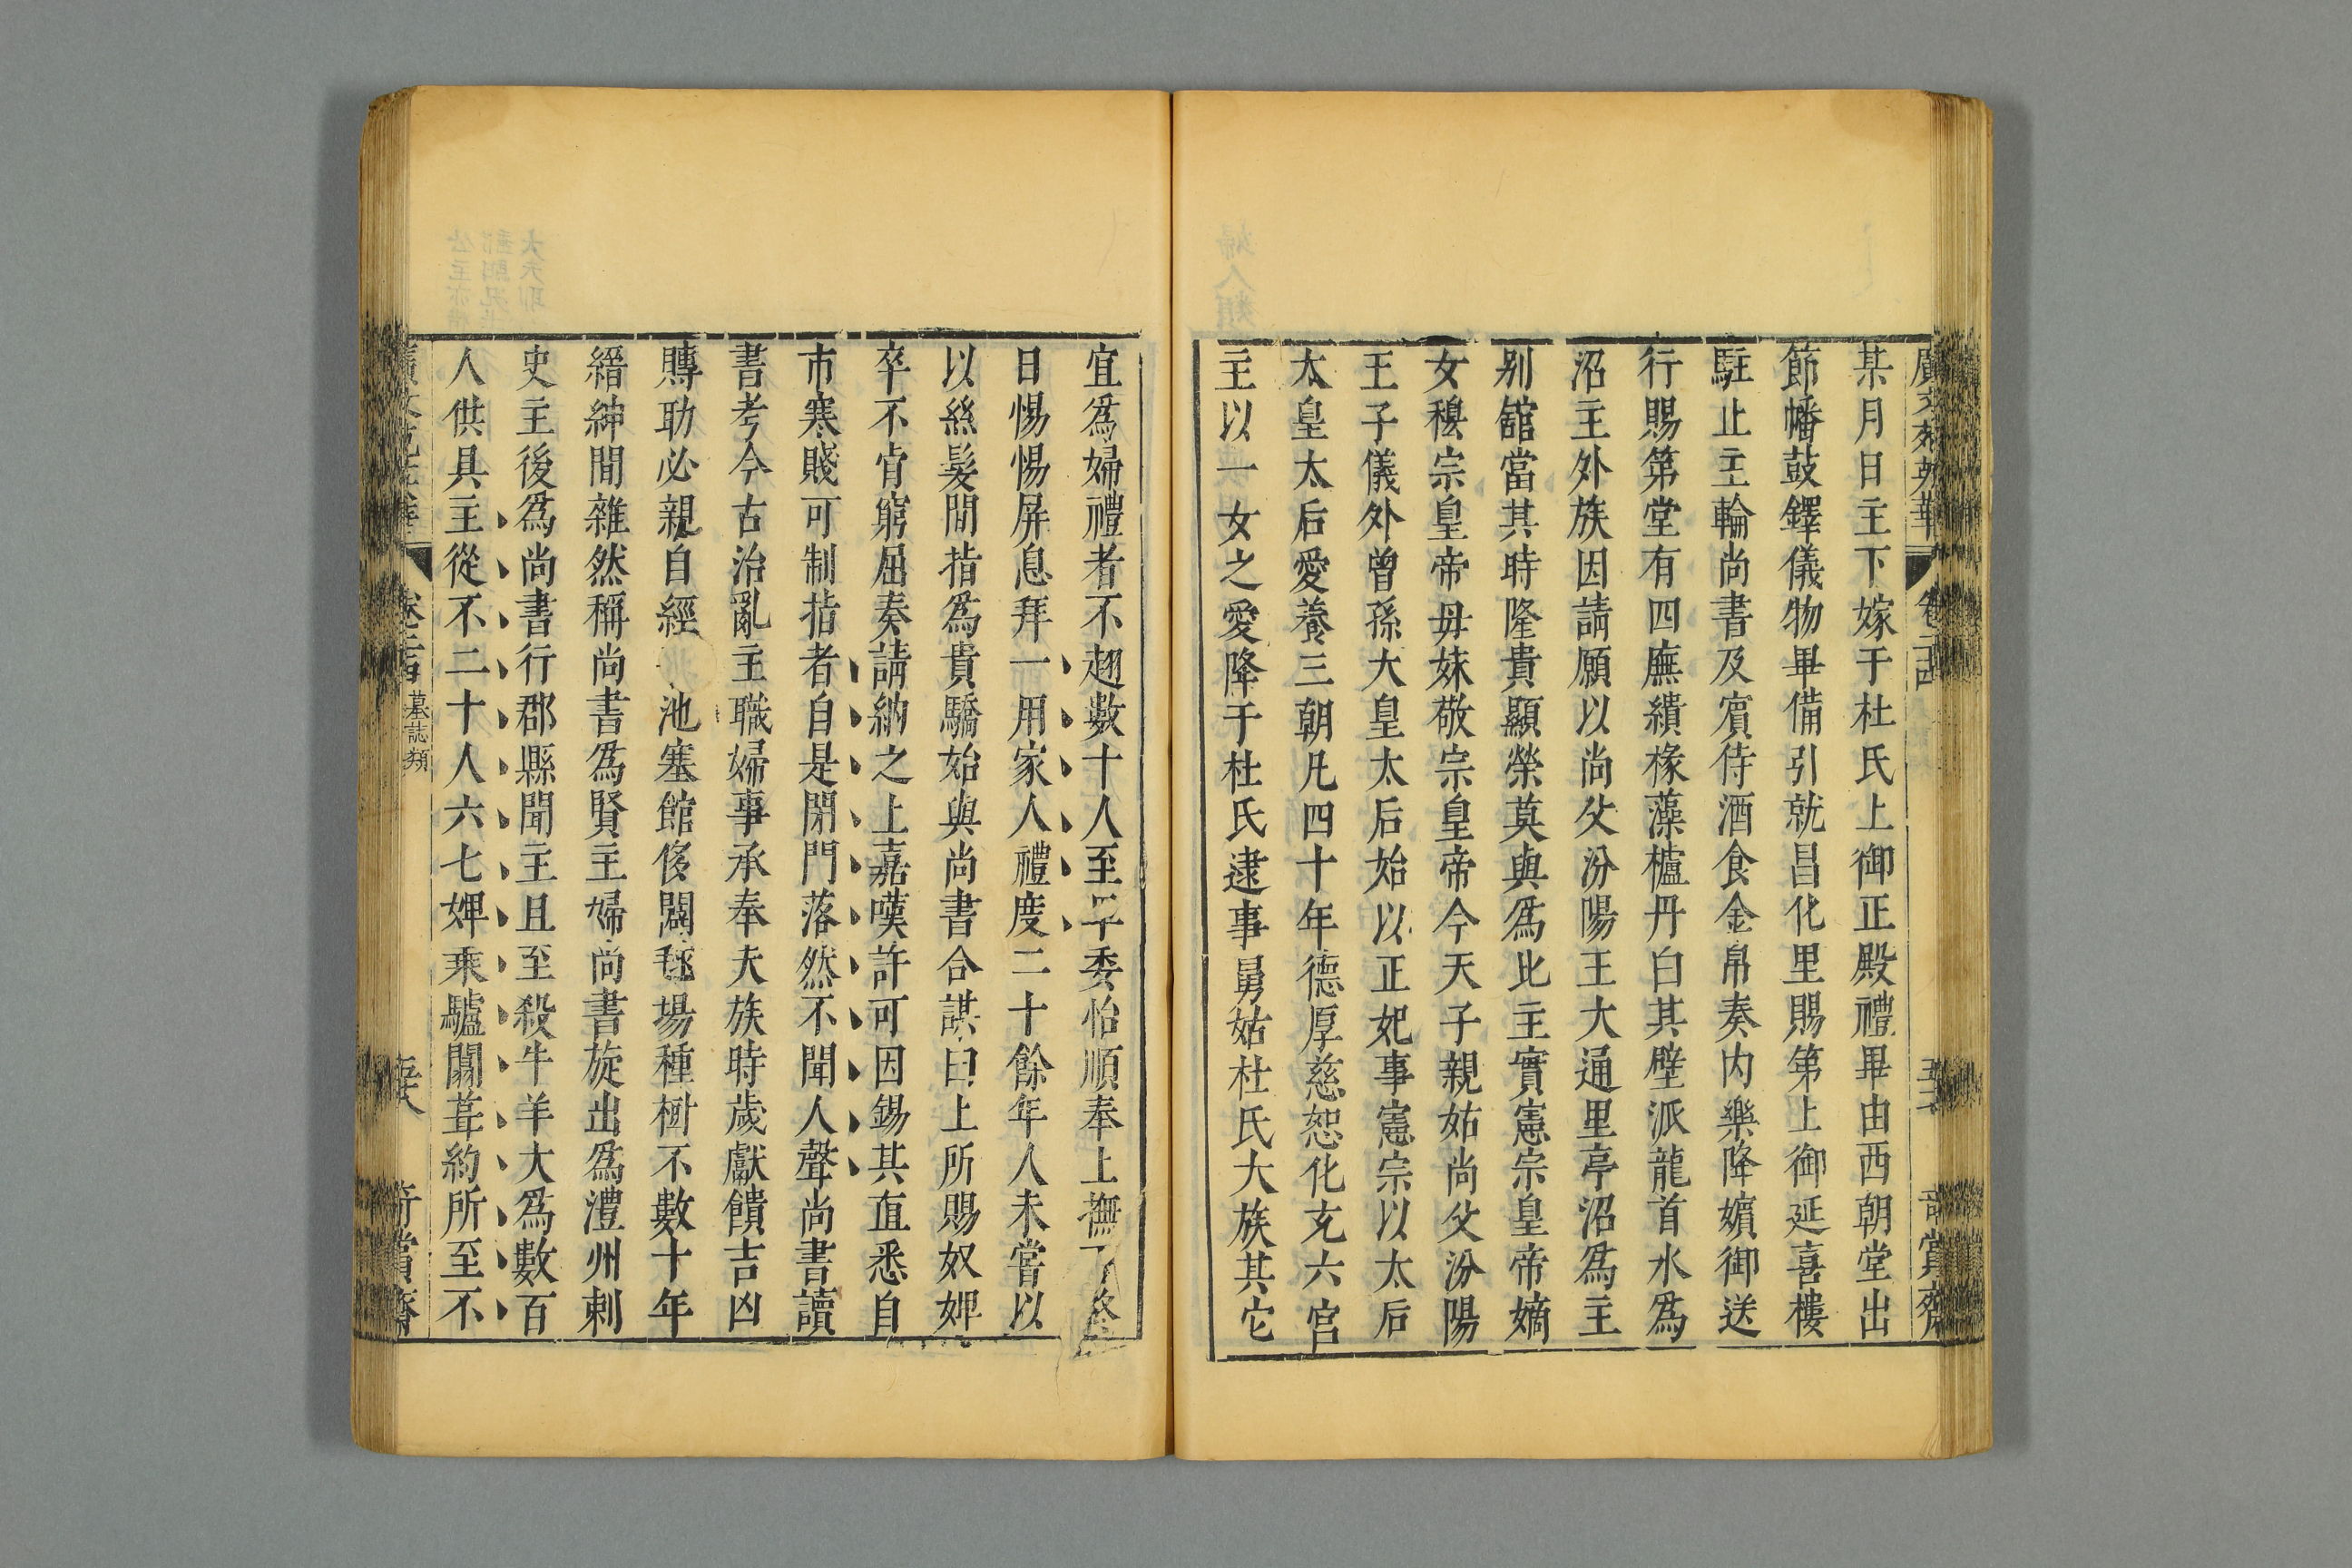 某月日主下嫁于杜氏上御正殿禮畢由西朝堂出
節幡鼓鐸儀物畢備引就昌化里賜第上御延喜樓
駐止主輪尚書及賓侍酒食金帛奏内樂降嬪御送
行賜第堂有四廡繢椽藻櫨丹白其壁派龍首水為
沼主外族因請願以尚父汾陽王大通里亭沼為主
别舘當其時隆貴顯榮莫與為比主實憲宗皇帝嫡
女穆宗皇帝毋妹敬宗皇帝今天子親姑尚父汾陽
王子儀外曾孫大皇太后始以正妃事憲宗以太后
太皇太后愛養三朝凡四十年德厚慈恕化充六宫
主以一女之愛降于杜氏逮事舅姑杜氏大族其它
宜為婦禮者不趐數十人至子委怡順奉上撫下
日惕惕屏息拜一用家人禮度二十餘年人未嘗以
以絲髮間指為貴驕始與尚書合謀曰上所賜奴婢
卒不肯窮屈奏請納之上嘉嘆許可因錫其直悉自
市寒賤可制指者自是閉門落然不聞人聲尚書讀
書考今古治亂主職婦事承奉夫族時歲獻饋吉凶
賻助必親自經池塞館侈闢毬場種樹不數十年
縉紳間雜然稱尚書為賢主婦尚書旋出為澧州刺
史主後為尚書行郡縣聞主且至殺牛羊大為數百
人供具主從不二十人六七婢乘驢闒葺約所至不
墓誌類